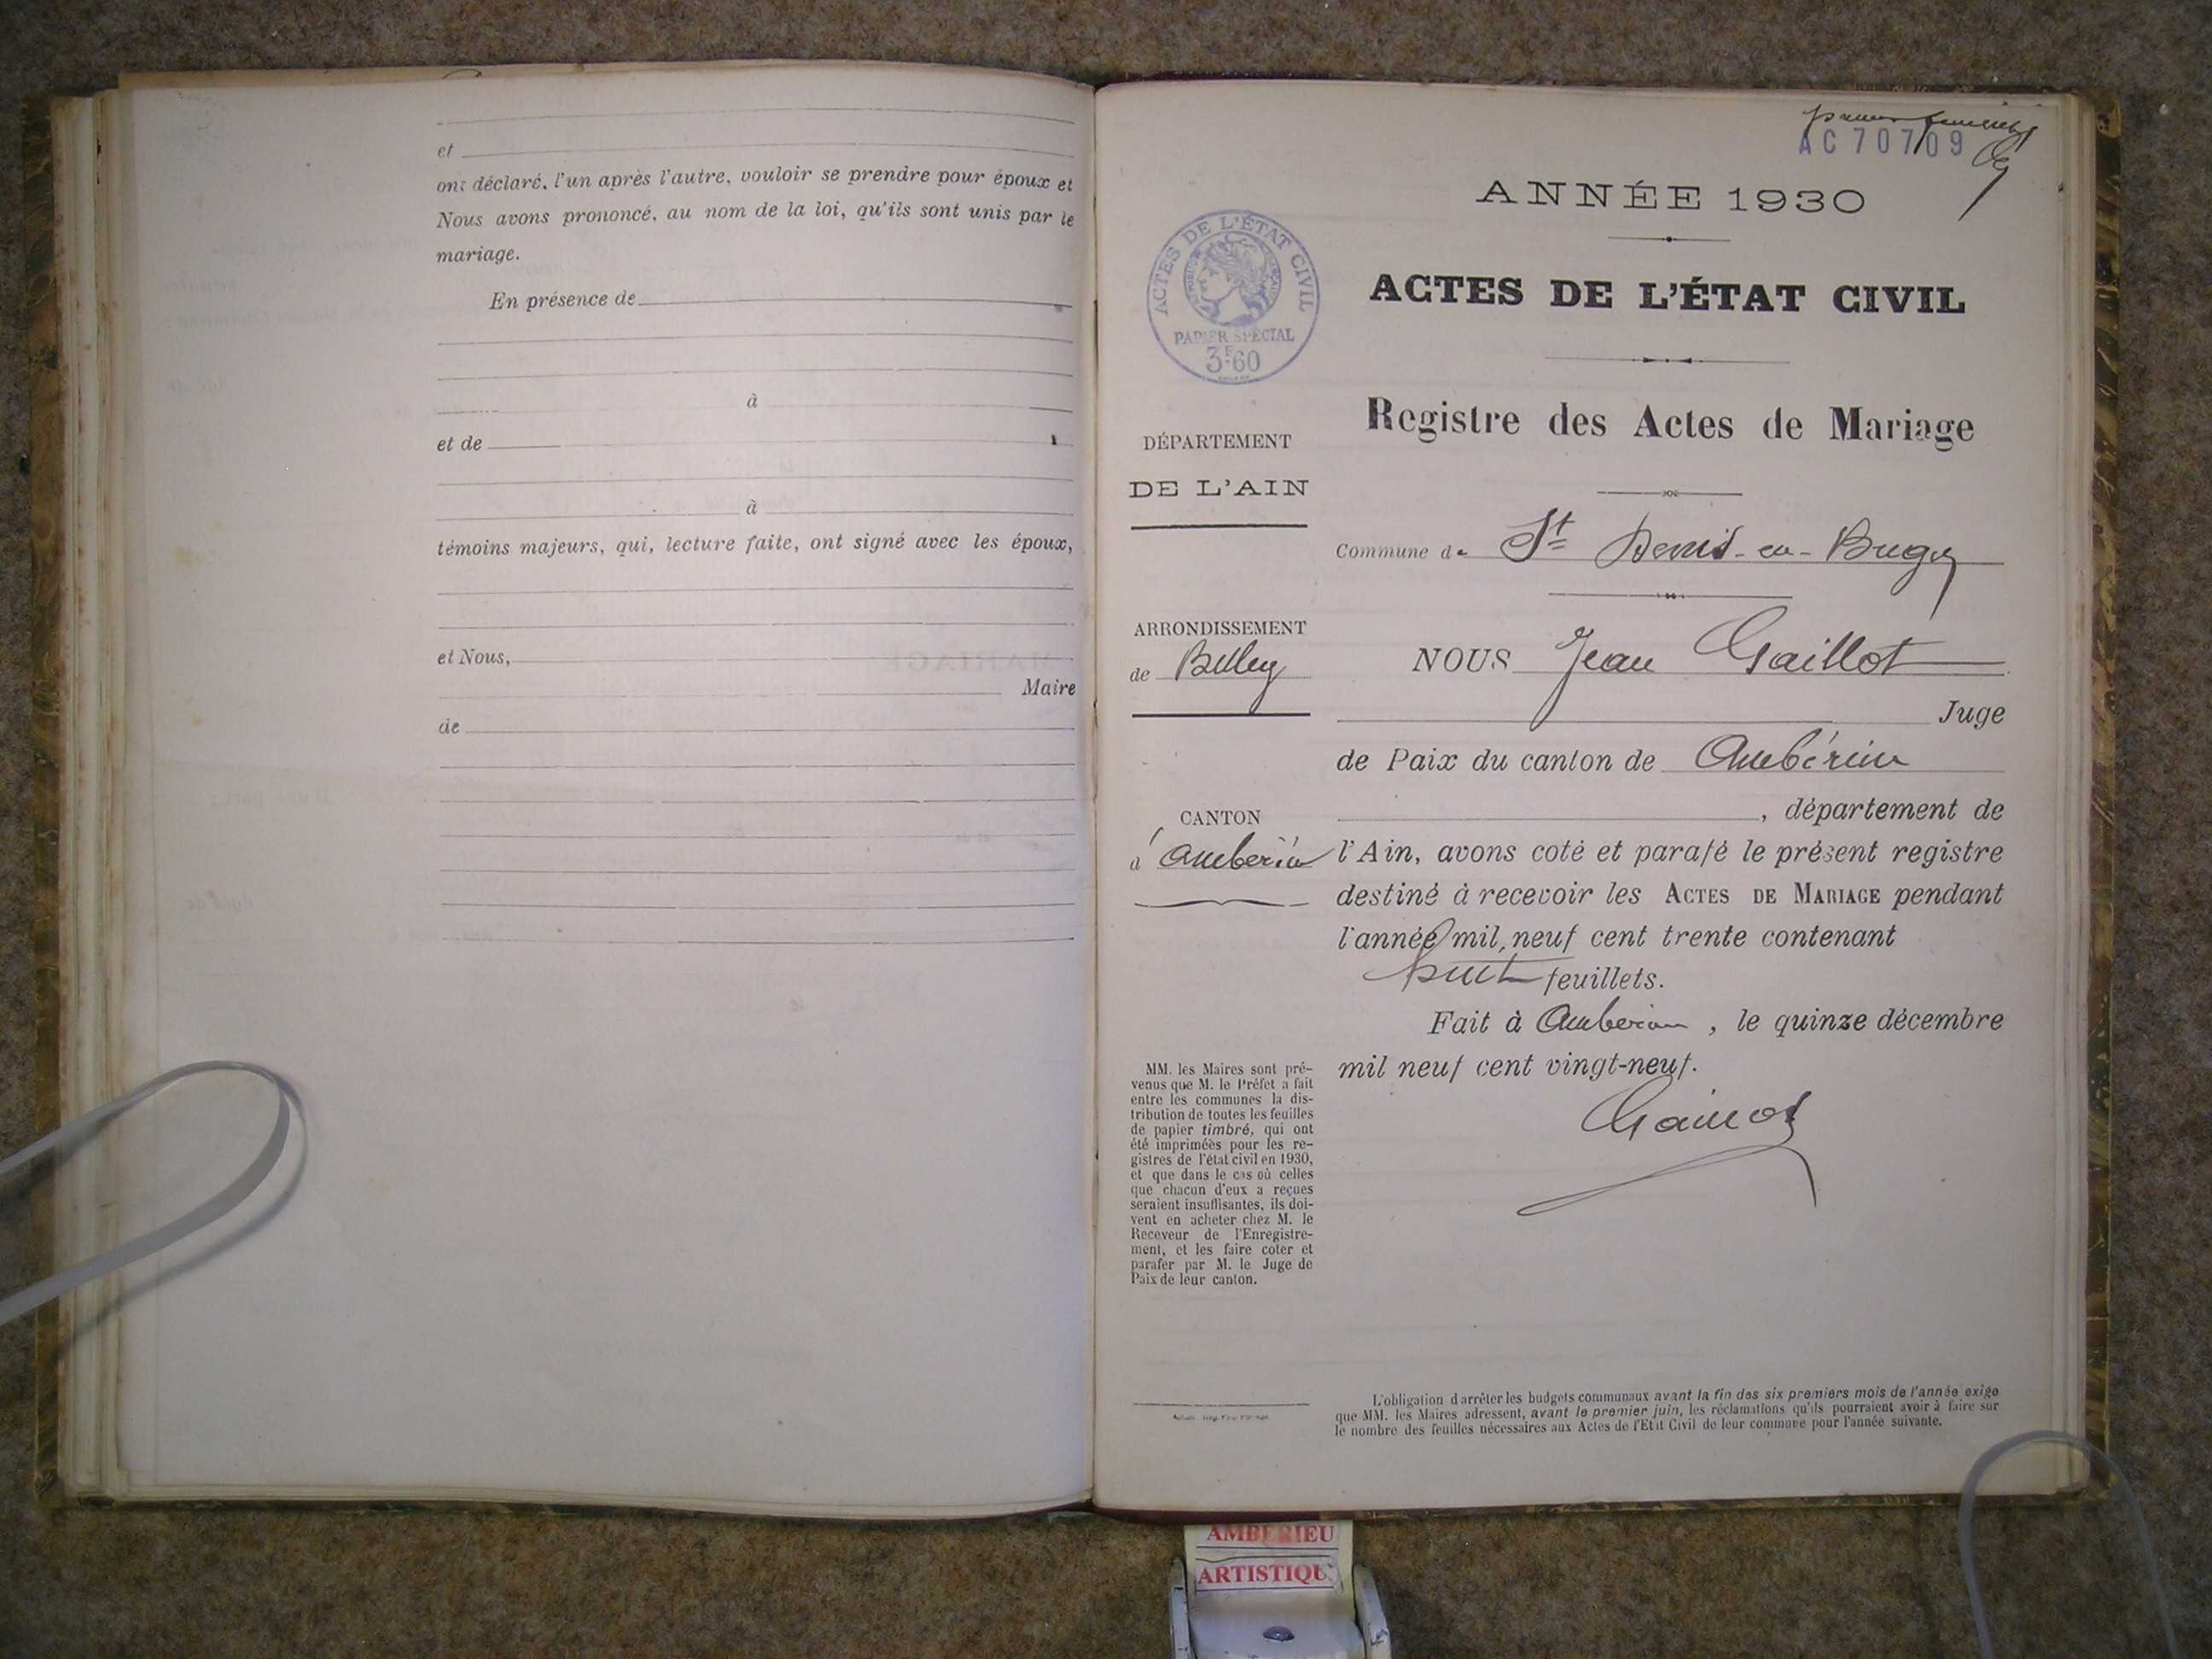 et
ont déclaré, l'un après l'autre, vouloir se prendre pour époux et
Nous avons prononcé, au nom de la loi, qu'ils sont unis par le
mariage.
En présence de
à
et de
à
témoins majeurs, qui, lecture faite, ont signé avec les époux,
et Nous,
Maire
de
premier feuillet
AC 70709
ANNÉE 1930
ACTES DE L'ÉTAT CIVIL
PAPIER SPÉCIAL
3F60
ACTES DE L'ÉTAT CIVIL
Registre des Actes de Mariage
DÉPARTEMENT
DE L'AIN
Commune de St Denis-en-Bugey
ARRONDISSEMENT
de Belley
NOUS Jean Gaillot
Juge
de Paix du canton de Ambérieu
, département de
CANTON
d'Ambérieu
l'Ain, avons coté et parafé le présent registre
destiné à recevoir les ACTES DE MARIAGE pendant
l'année mil neuf cent trente contenant
huit feuillets.
Fait à Amberieu, le quinze décembre
mil neuf cent vingt-neuf.
Gaillot
MM. les Maires sont pré-
venus que M. le Préfet a fait
entre les communes la dis-
tribution de toutes les feuilles
de papier timbré, qui ont
été imprimées pour les re-
gistres de l'état civil en 1930,
et que dans le cas où celles
que chacun d'eux a reçues
seraient insuffisantes, ils doi-
vent en acheter chez M. le
Receveur de l'Enregistre-
ment, et les faire coter et
parafer par M. le Juge de
Paix de leur canton.
L'obligation d'arrêter les budgets communaux avant la fin des six premiers mois de l'année exige
que MM. les Maires adressent, avant le premier juin, les réclamations qu'ils pourraient avoir à faire sur
le nombre des feuilles nécessaires aux Actes de l'Etat Civil de leur commune pour l'année suivante.
AMBERIEU
ARTISTIQU